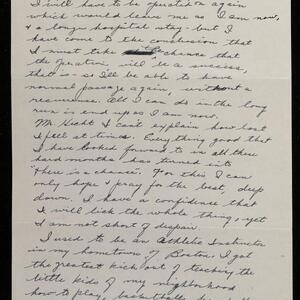 I will have to be operated on again
which would leave me as I am now,
& a long hospital stay - but I
have come to the conclusion that
I must take chance that
the operation will be a success,
that is - so I'll be able to have
normal passage again, without a
recurrence. All I can do in the long
run is end up as I am now.
Mr. I can't explain how lost
I feel at times. Everything good that
I have looked forward to in all these
hard months has turned into
"there is a chance". For this I can
only hope & pray for the best, deep
down. I have a confidence that
I will lick the whole thing, yet
I am not short of despair.
I used to be an Athletic Instructor
in my hometown of Boston. I got
the greatest kick out of teaching the
little kids of my neighborhood
how to play, basketball,